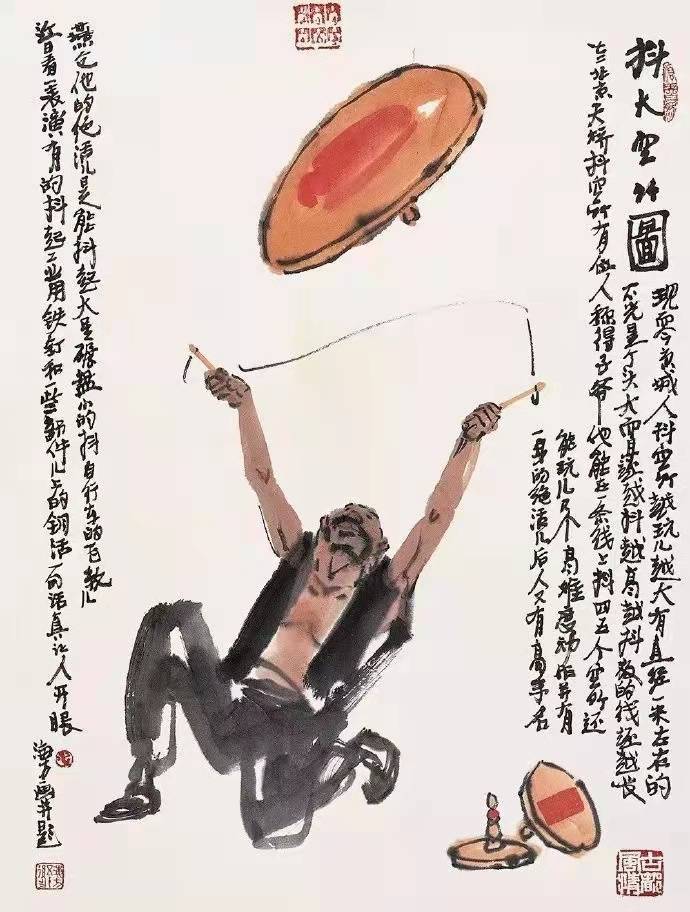 抖大空竹圖
现今京城人抖空竹越玩儿越大有直经一米左右的
不光是个头大而且还越抖越高越抖放的线还越长
北京天桥抖空竹有位人称得子爷他能在一条线上抖四五个空竹还
能玩儿几个高难度动作并有
一身的绝活儿后人又有高手名
他的绝活是能抖起大至碾盘小的抖自行车的飞轮儿
近日看表演有的抖起工业用铁钉和一些部件儿上的钢活一句话真让人开眼
海方画并题
古都風情